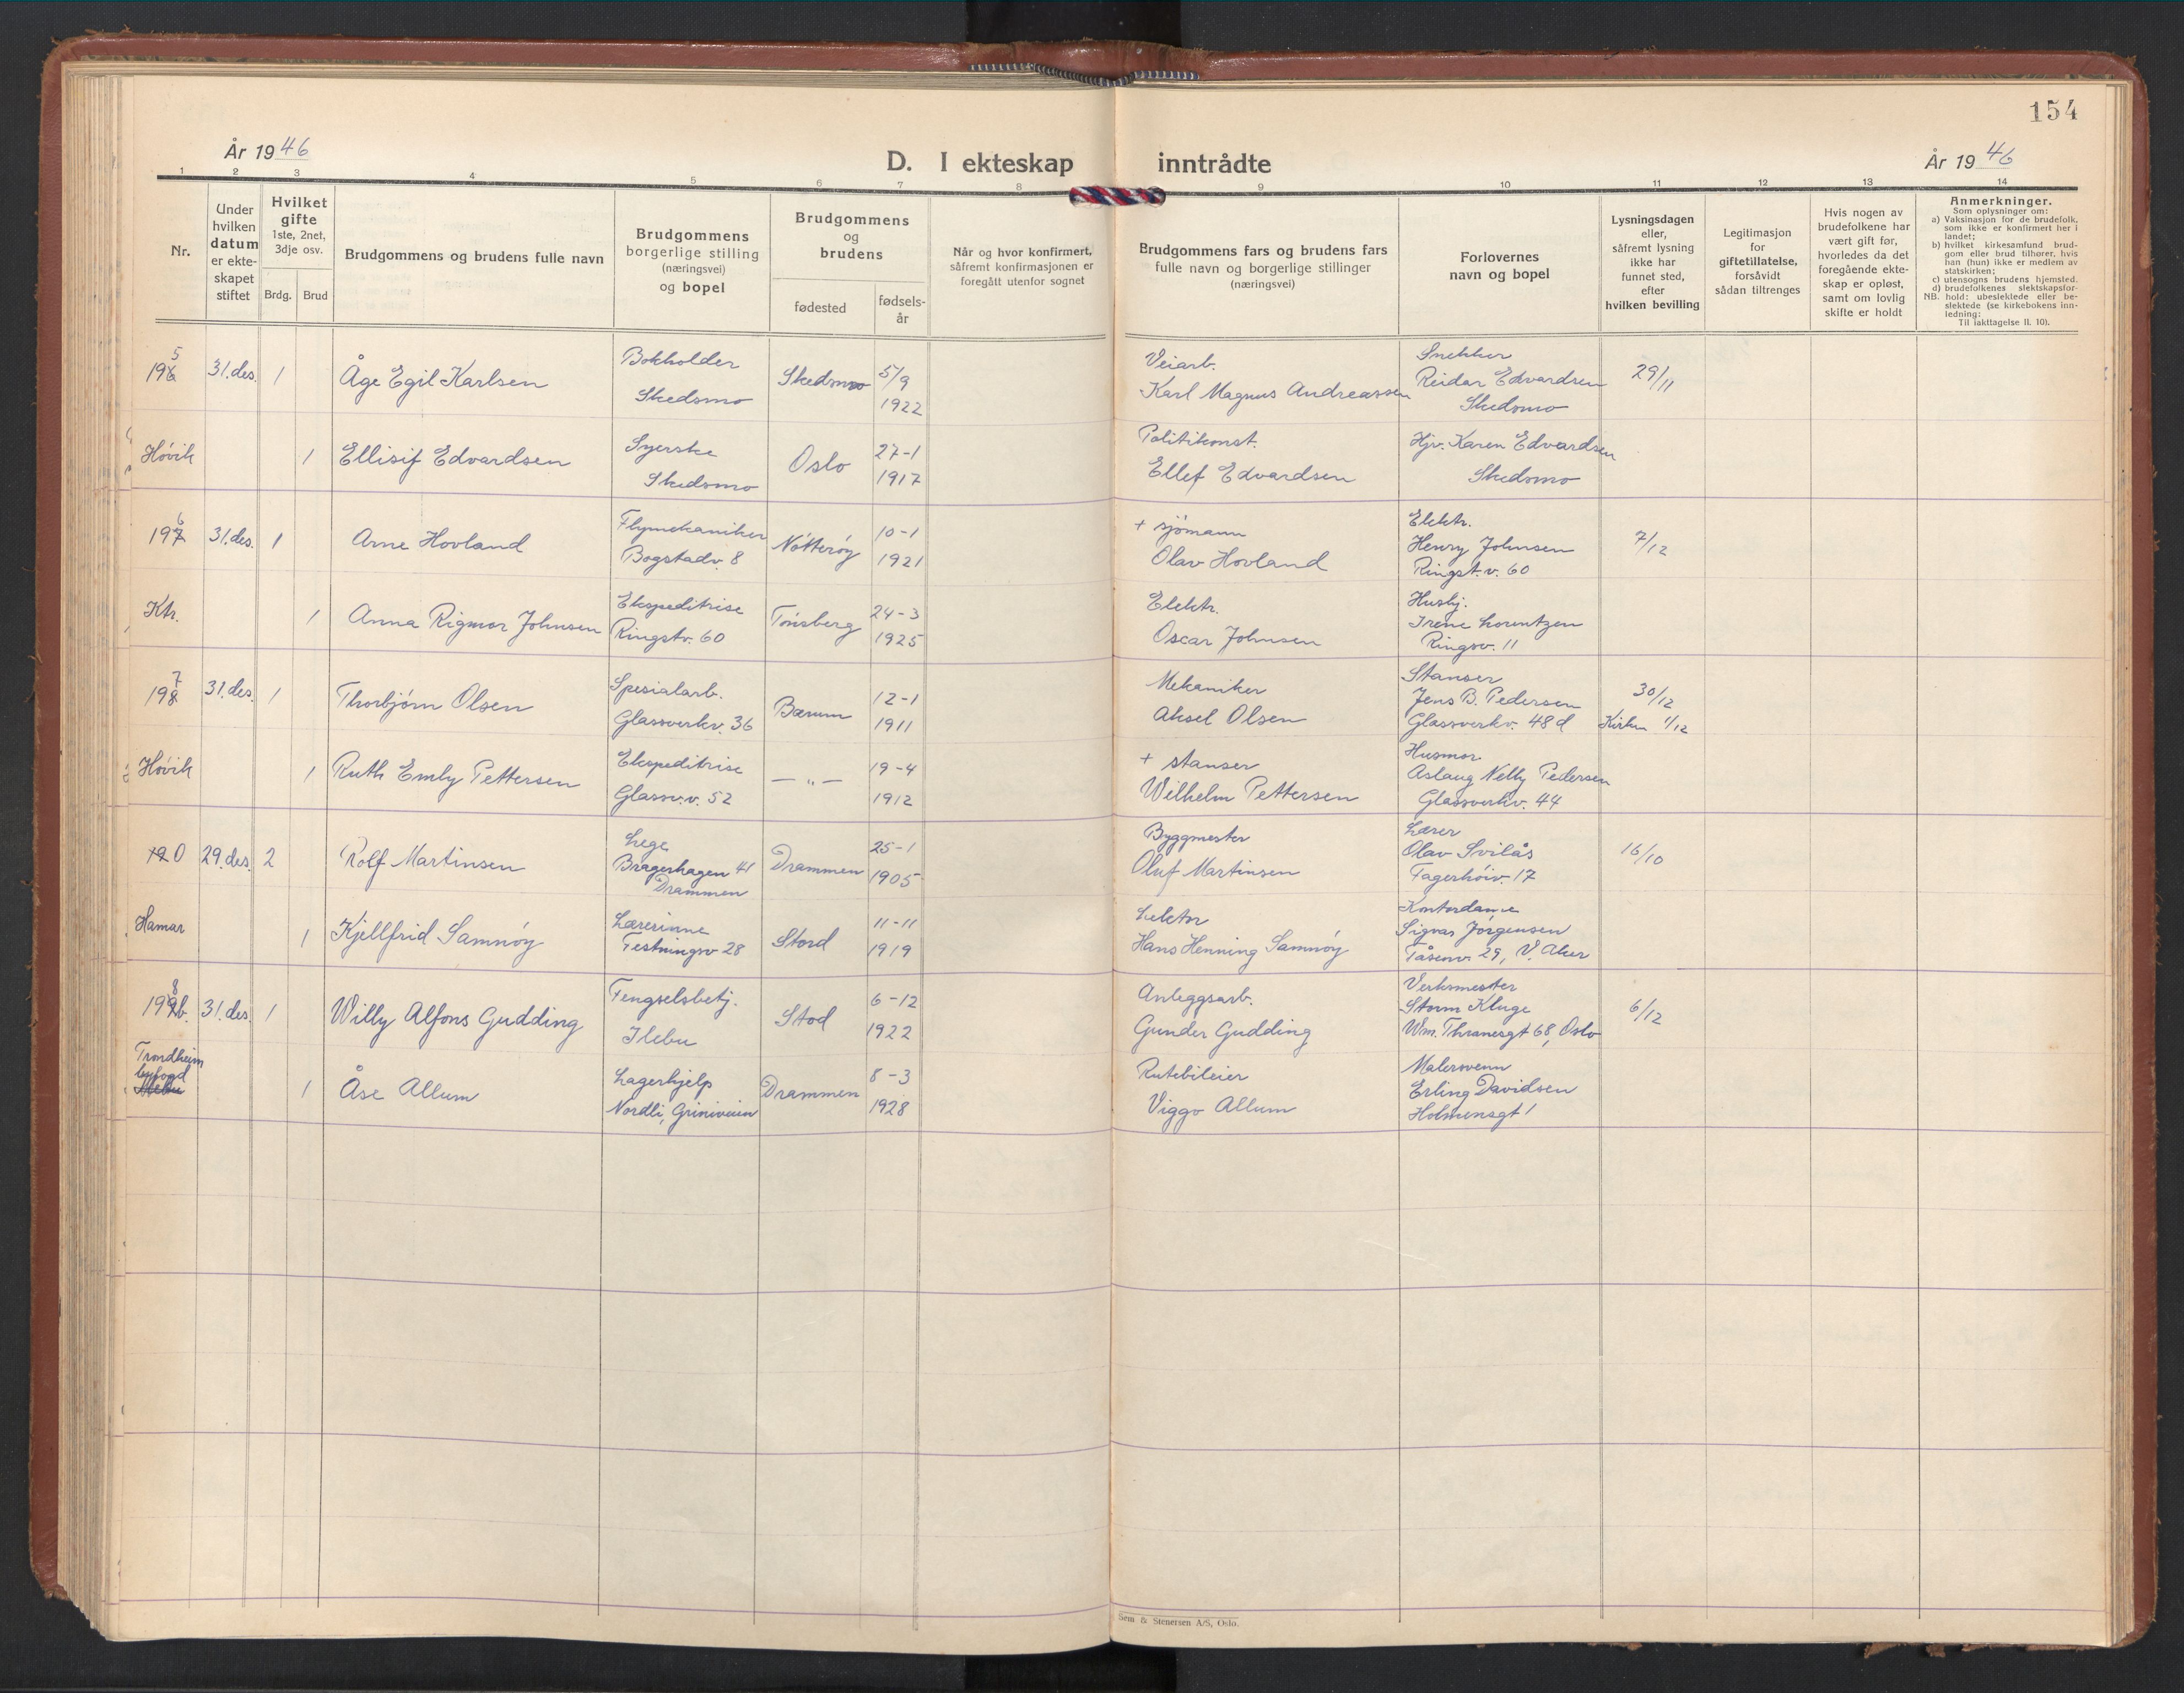 154
År 1946
D. I ekteskap inntrådte
År 1946
1 2 3 4 5 6 7 8 9 10 11 12 13 14
Nr.
Under
hvilken
datum
er ekte-
skapet
stiftet
Hvilket
gifte
1ste, 2net,
3dje osv.
Brdg. Brud
Brudgommens og brudens fulle navn
Brudgommens
borgerlige stilling
(næringsvei)
og bopel
Brudgommens
og
brudens
fødested
fødsels-
år
Når og hvor konfirmert,
såfremt konfirmasjonen er
foregått utenfor sognet
Brudgommens fars og brudens fars
fulle navn og borgerlige stillinger
(næringsvei)
Forlovernes
navn og bopel
Lysningsdagen
eller,
såfremt lysning
ikke har
funnet sted,
efter
hvilken bevilling
Legitimasjon
for
giftetillatelse,
forsåvidt
sådan tiltrenges
Hvis nogen av
brudefolkene har
vært gift før,
hvorledes da det
foregående ekte-
skap er opløst,
samt om lovlig
skifte er holdt
Anmerkninger.
Som oplysninger om:
a) Vaksinasjon for de brudefolk,
som ikke er konfirmert her i
landet;
b) hvilket kirkesamfund brud-
gom eller brud tilhører, hvis
han (hun) ikke er medlem av
statskirken;
c) utensogns brudens hjemsted.
d) brudefolkenes slektskapsfor-
NB. hold: ubeslektede eller be-
slektede (se kirkebokens inn-
ledning:
Til iakttagelse II. 10).
5
196 31.des. 1 Åge Egil Karlsen
Bokholder
Skedsmo
Skedsmo
5/9
1922
Veiarb.
Karl Magnus Andreassen
Snekker
Reidar Edvardsen
Skedsmo
29/11
Høvik 1 Ellisif Edvardsen
Syerske
Skedsmo
Oslo
27-1
1917
Politikonst.
Ellef Edvardsen
Hjv. Karen Edvardsen
Skedsmo
6
197 31.des. 1 Arne Hovland
Flymekaniker
Bogstadv. 8
Nøtterøy
10-1
1921
+ sjømann
Olav Hovland
Elektr.
Henry Johnsen
Ringst.v. 60
7/12
Ktr. 1 Anna Rigmor Johnsen
Ekspeditrise
Ringstv. 60
Tønsberg
24-3
1925
Elektr.
Oscar Johnsen
Husbj.
Irene Lorentzen
Ringsv. 11
7
198 31.des. 1 Thorbjørn Olsen
Spesialarb.
Glassverkv. 36
Bærum
12-1
1911
Mekaniker
Aksel Olsen
Stanser
Jens B. Pedersen
Glassverkv. 48d
30/12
Kirken 1/12
Høvik 1 Ruth Emly Pettersen
Ekspeditrise
Glassv.v. 52
— „ —
19-4
1912
+ stanser
Wilhelm Pettersen
Husmor
Aslaug Nelly Pedersen
Glassverkv. 44
190 29.des. 2 Rolf Martinsen
Lege
Bragerhagen 41
Drammen
Drammen
25-1
1905
Byggmester
Oluf Martinsen
Lærer
Olav Svilås
Fagerhøiv. 17
16/10
Hamar 1 Kjellfrid Samnøy
Lærerinne
Festningsv 28
Stord
11-11
1919
Lektor
Hans Henning Samnøy
Kontordame
Sigvar Jørgensen
Tåsenv. 29, V. Aker
8
199b. 31.des. 1 Willy Alfons Gudding
Fengselsbetj.
Ilebu
Stod
6-12
1922
Anleggsarb.
Gunder Gudding
Verksmester
Storm Kluge
Wm. Thranesgt 68, Oslo
6/12
Trondheim
byfogd
Ilebu
1 Åse Allum
Lagerhjelp
Nordli, Griniveien
Drammen
8-3
1928
Rutebileier
Viggo Allum
Malersvenn
Erling Davidsen
Holmensgt 1
Sem & Stenersen A/S, Oslo.